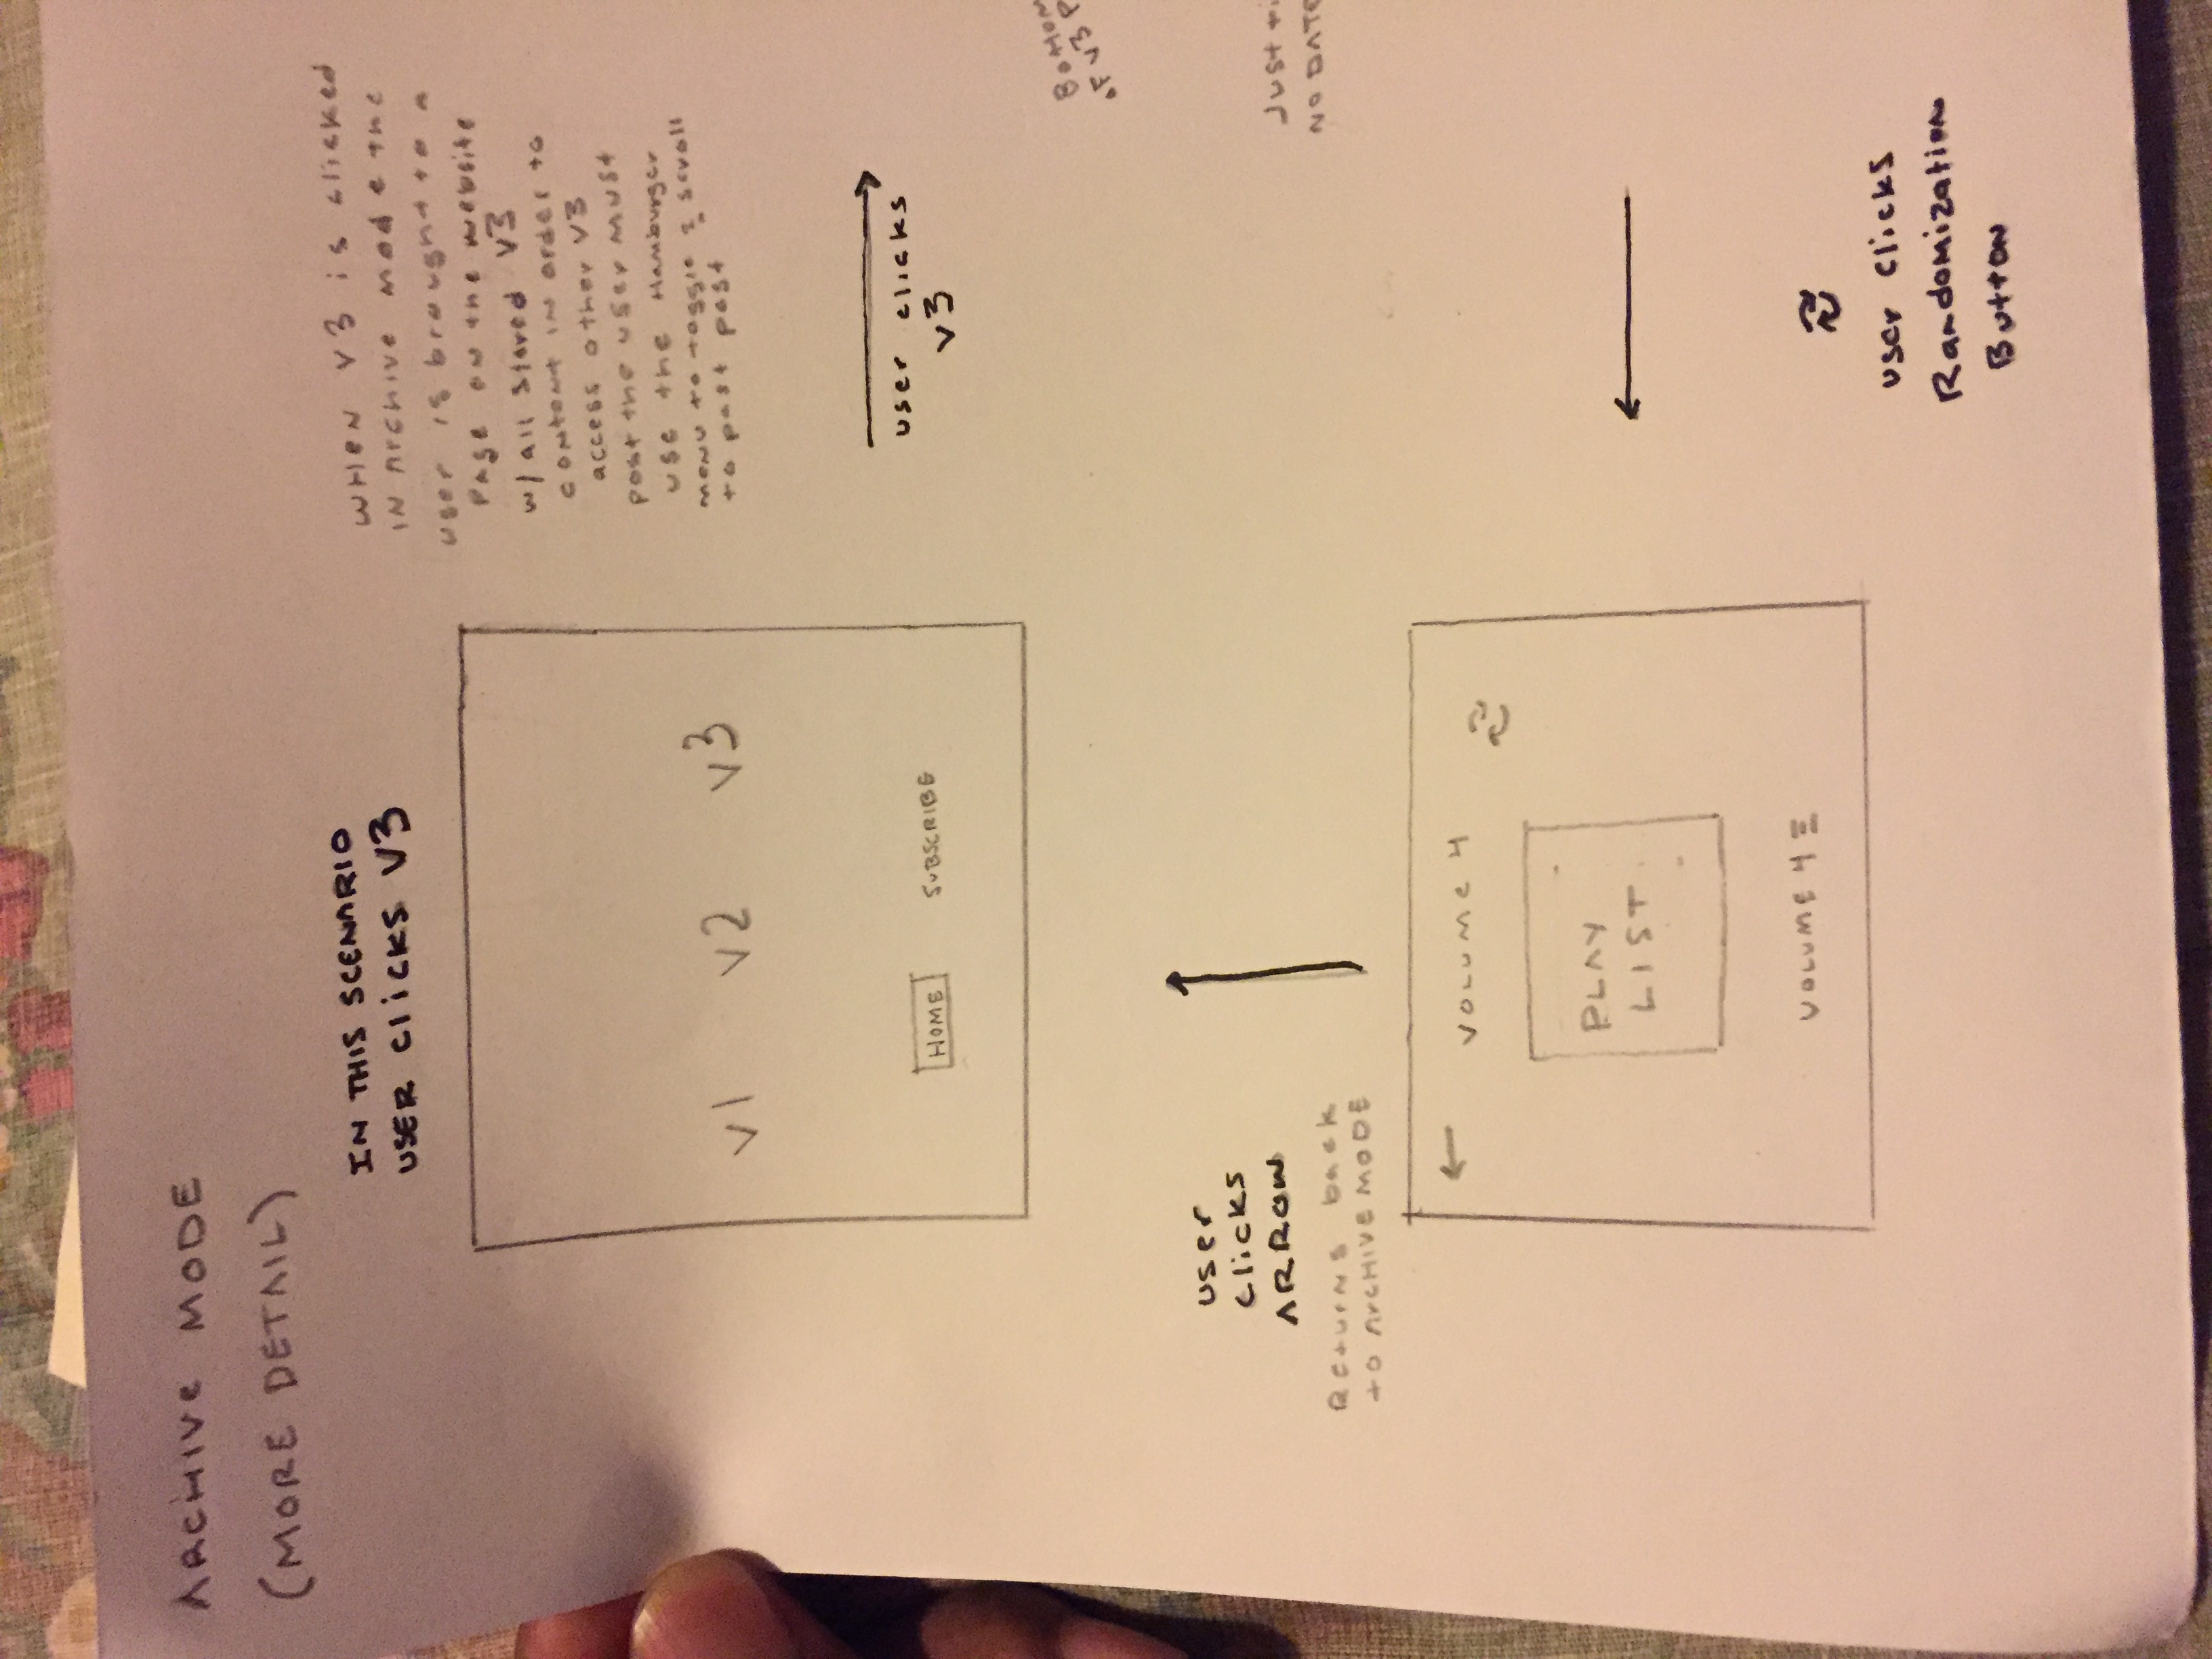 ARCHIVE MODE
(MORE DETAIL)
IN THIS SCENARIO
USER CLICKS V3
WHEN V3 is clicked
IN Archive mode the
user is brought to a
Page on the website
w/ all stored V3
content in order to
access other V3
post the user must
use the Hamburger
menu to toggle & scroll
to past post
V1 V2 V3
HOME SUBSCRIBE
user clicks
V3
Bottom
of V3 P
user
clicks
ARROW
Returns back
to ARCHIVE MODE
Just ti
NO DATE
← VOLUME 4
PLAY
LIST
VOLUME 4 ☰
user clicks
Randomization
Button